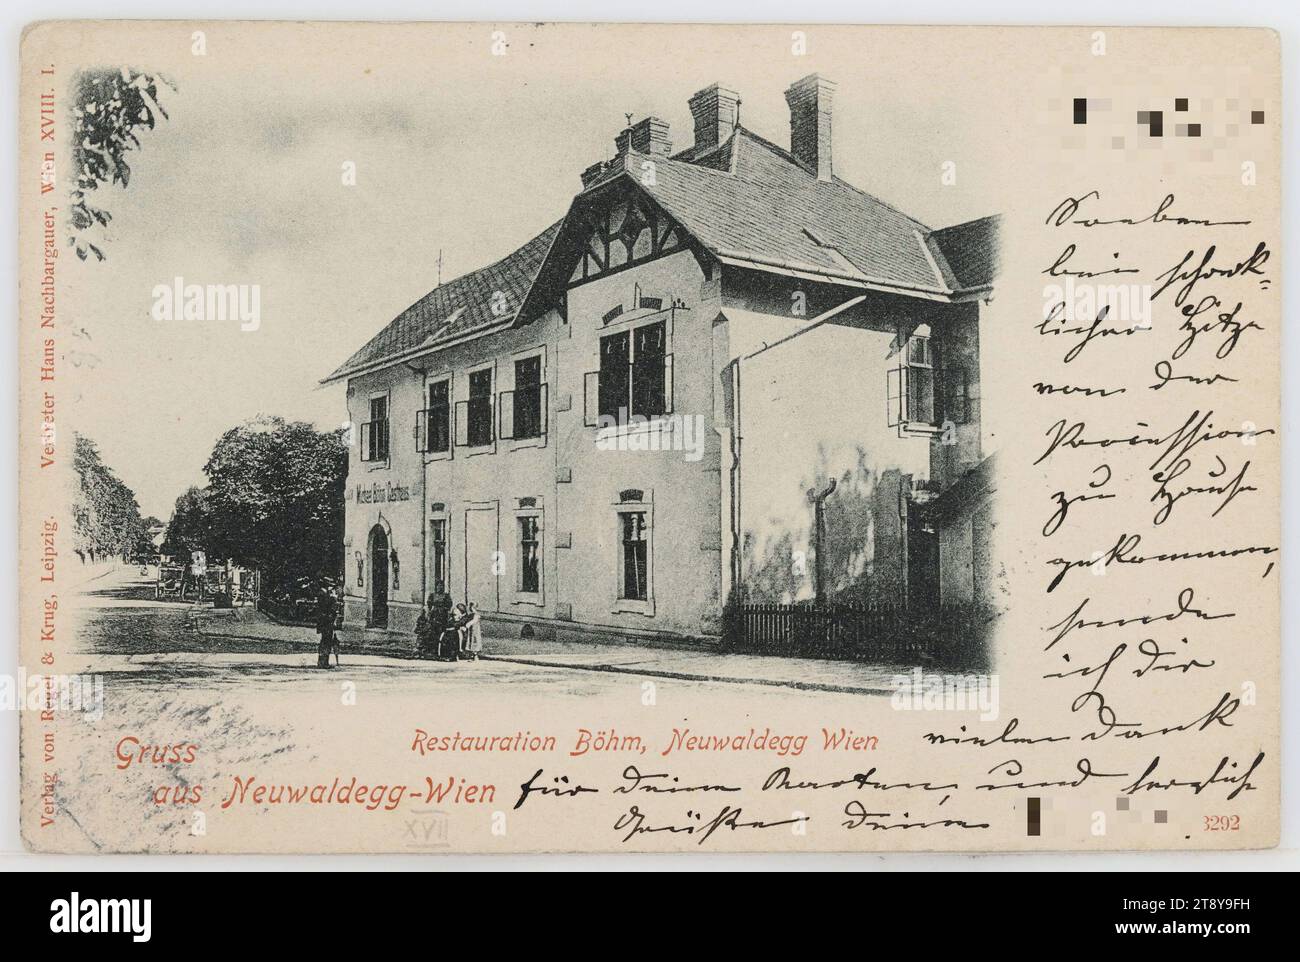 Verlag von Regel & Krug, Leipzig. Vertreter Hans Nachbargauer, Wien XVIII. I.
Soeben
bei schreck-
licher Hitze
von der
Procession
zu Hause
gekommen,
sende
ich Dir
vielen Dank
für Deine Karten, und herzliche
Grüße Deine
Böhm Gasthaus
Restauration Böhm, Neuwaldegg Wien
Gruss
aus Neuwaldegg-Wien
XVII
3292
a
alamy
alamy
Image ID: 2T8Y9FH
www.alamy.com